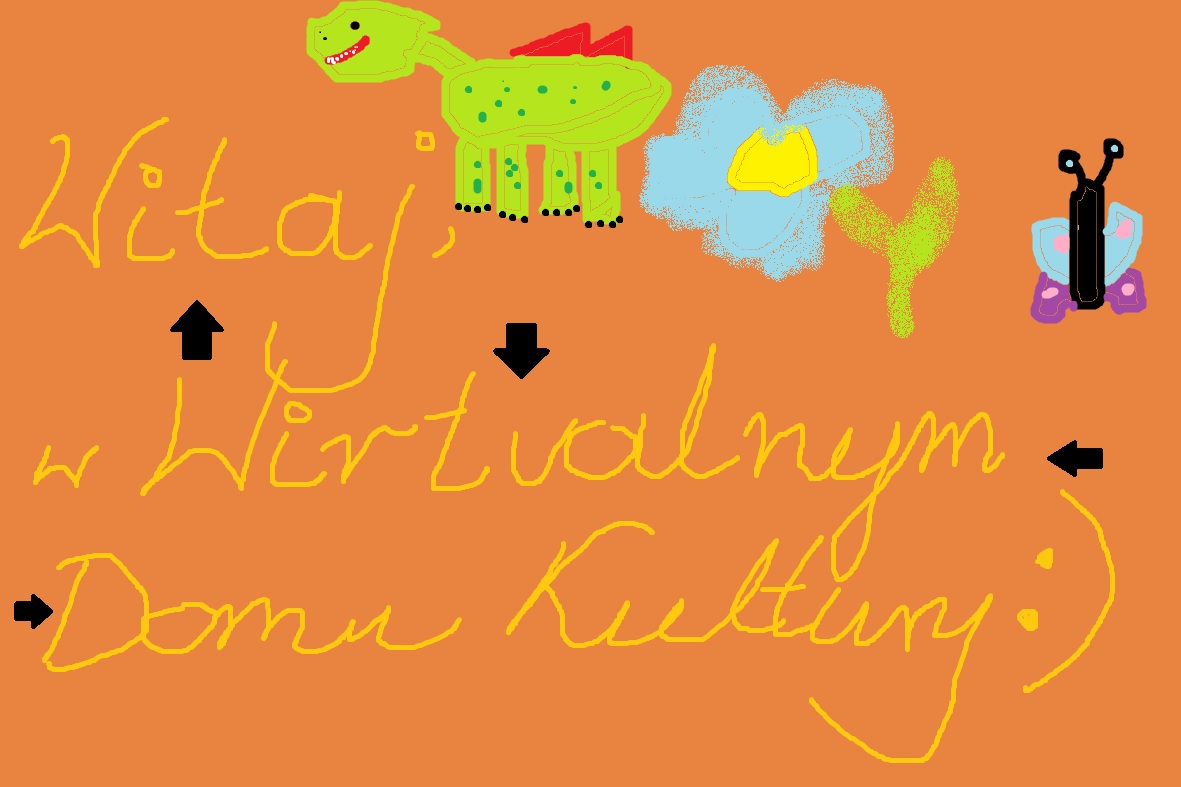 Witaj,
w Wirtualnym
Domu Kultury :)